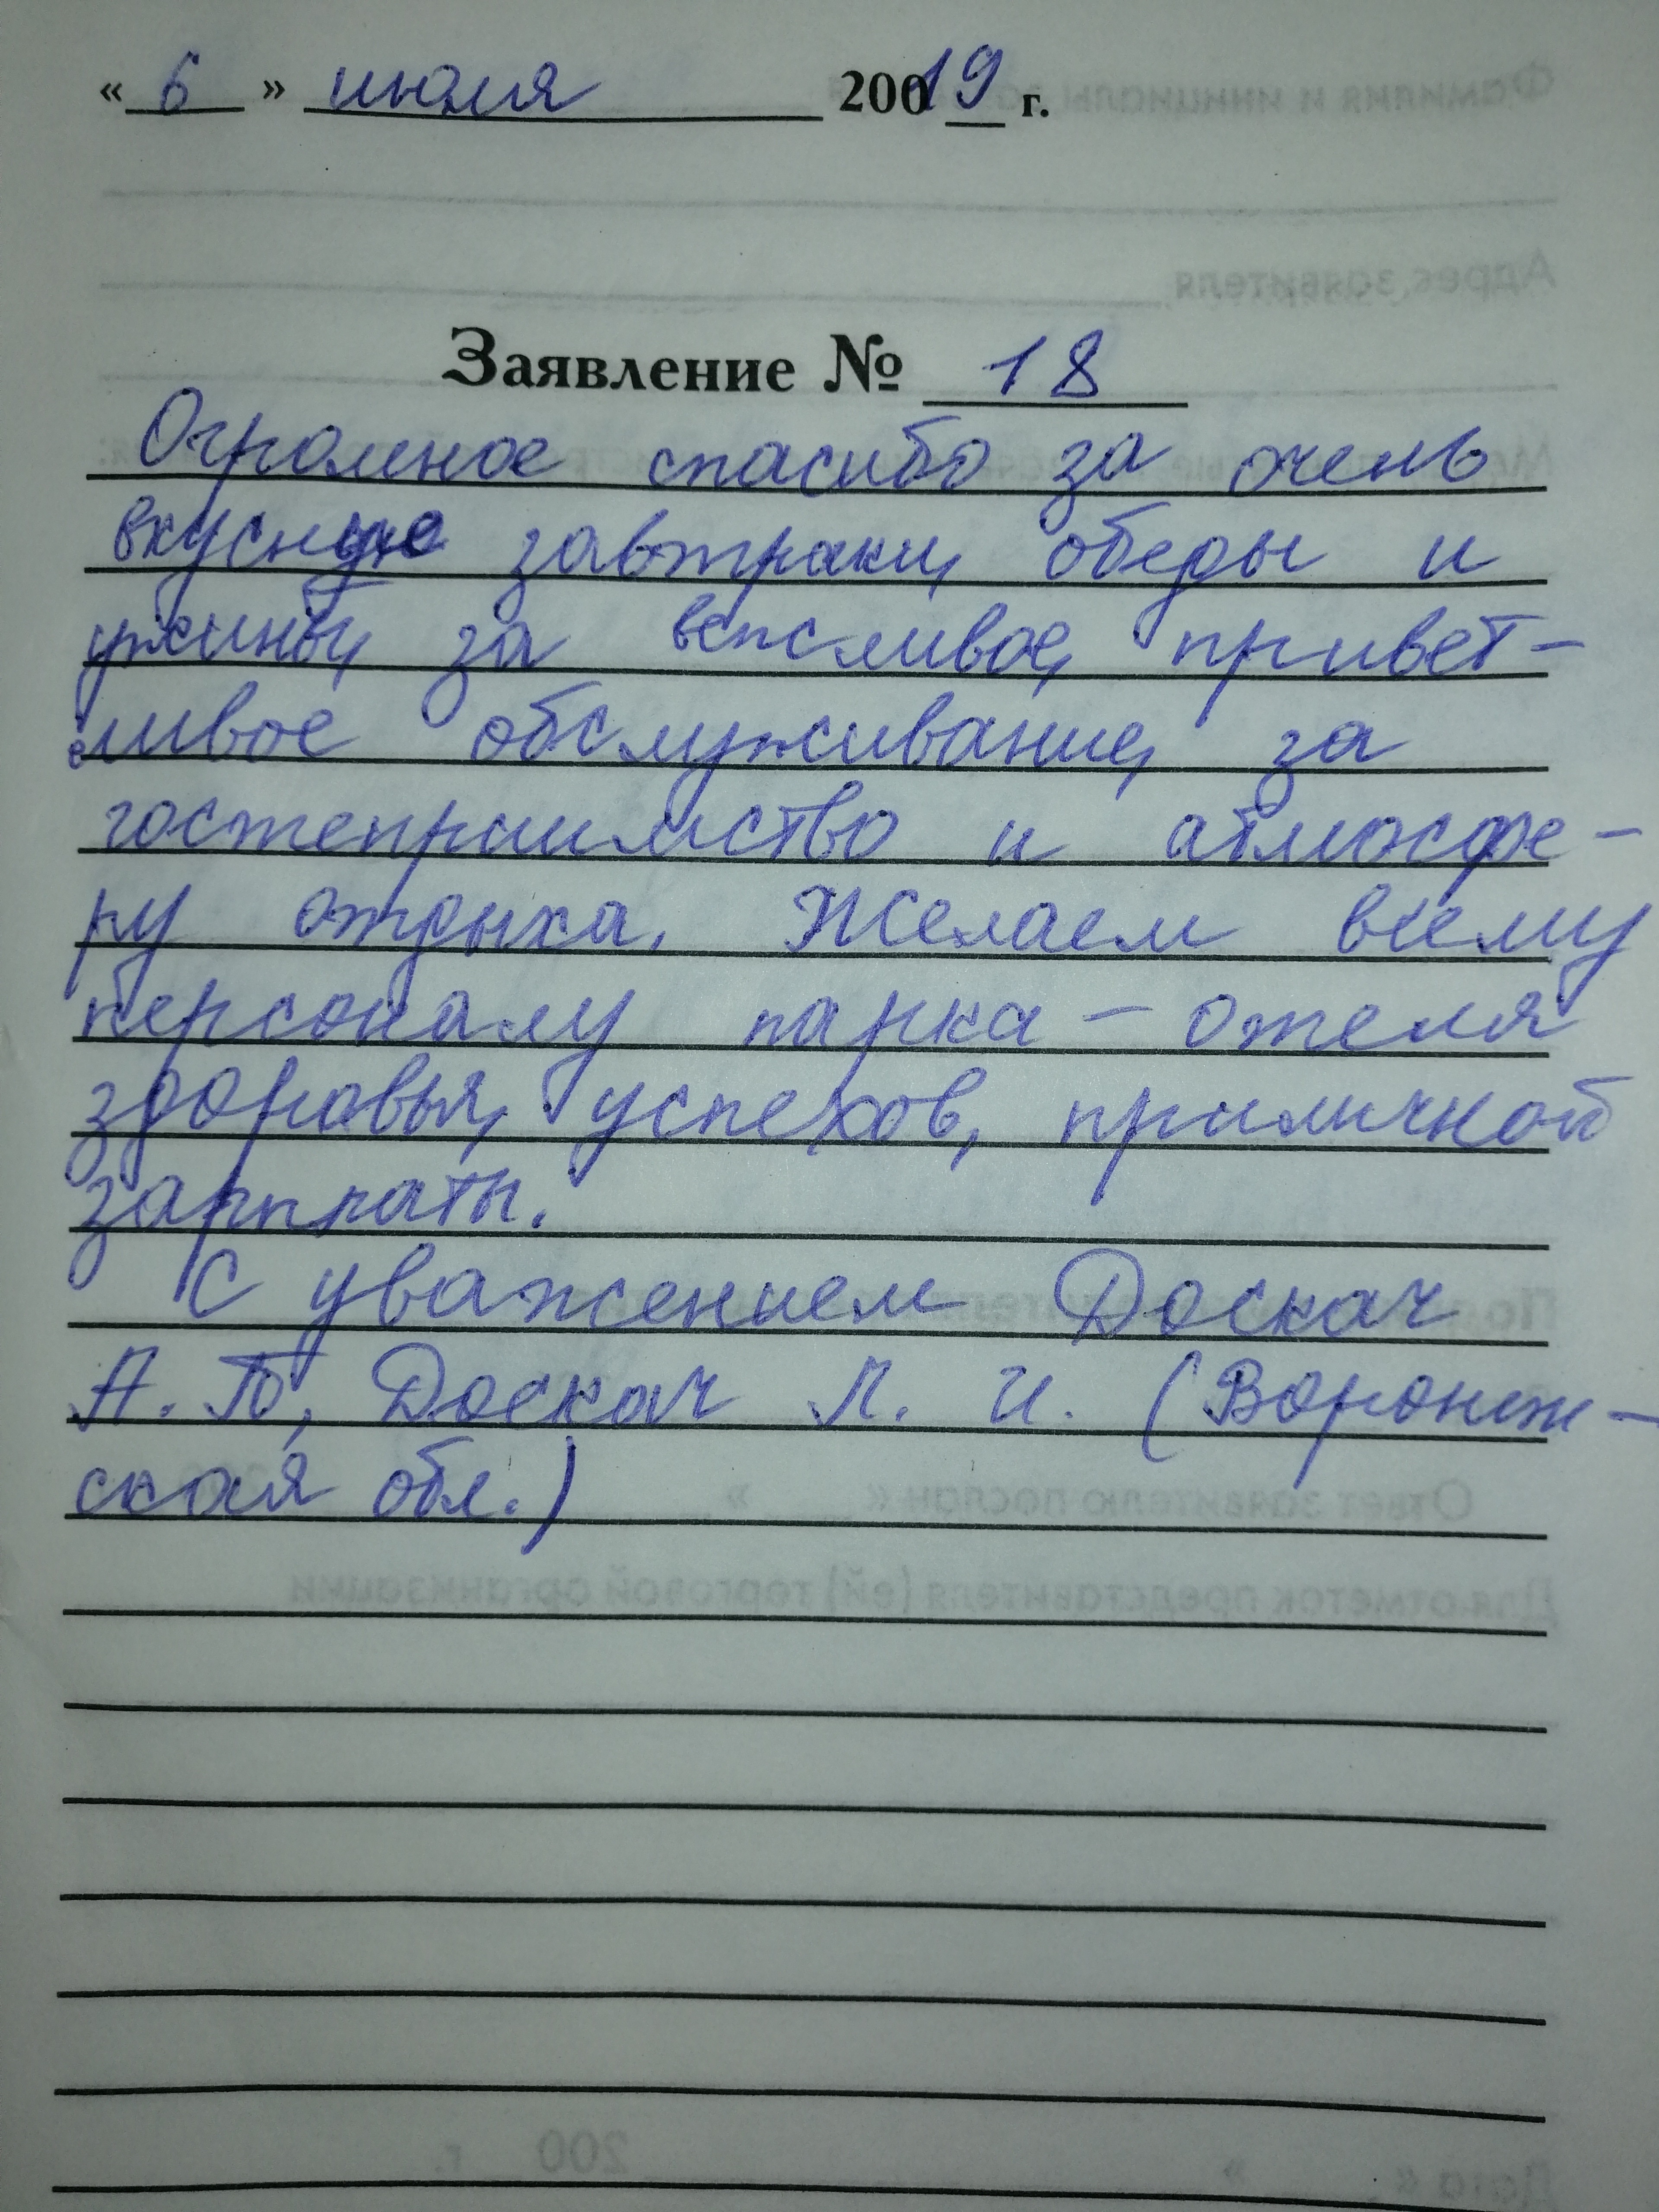 « 6 » июля 20019 г.
Заявление № 18
Огромное спасибо за очень
вкусные завтраки, обеды и
ужины, за вежливое, привет-
ливое обслуживание, за
гостеприимство и атмосфе-
ру отдыха. Желаем всему
персоналу парка-отеля
здоровья, успехов, приличной
зарплаты.
С уважением Доскач
А. П., Доскач Л. И. (Воронеж-
ская обл.)